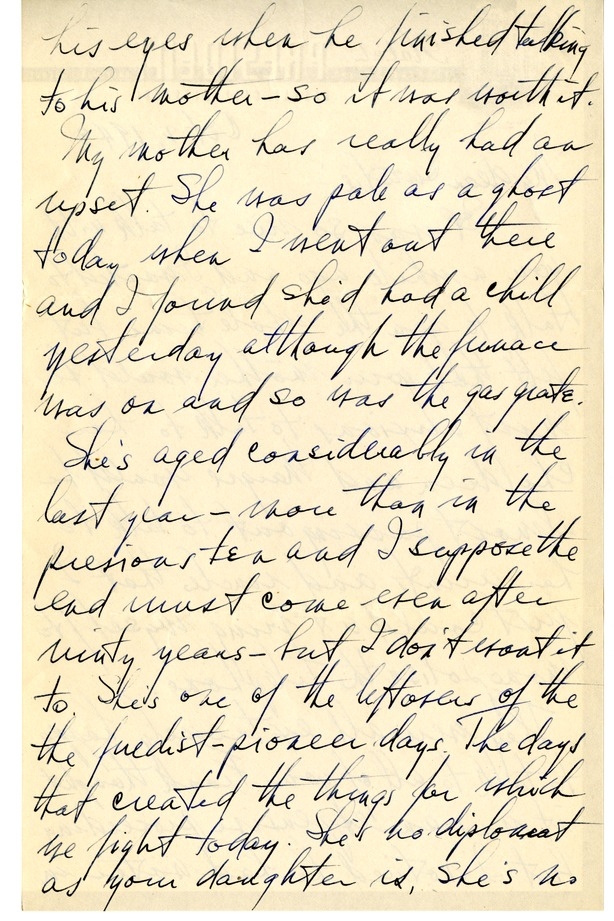 his eyes when he finished talking
to his mother – so it was worth it.
My mother has really had an
upset. She was pale as a ghost
today when I went out there
and I found she'd had a chill
yesterday although the furnace
was on and so was the gas grate.
She's aged considerably in the
last year – more than in the
previous ten and I suppose the
end must come even after
ninty years – but I don't want it
to. She's one of the leftovers of the
the fuedist-pioneer days. The days
that created the things for which
we fight today. She's no diplomat
as your daughter is, she's no